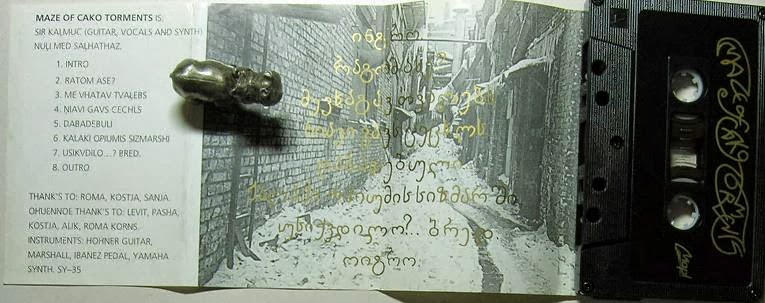 MAZE OF CAKO TORMENTS IS:
SIR KALMUC (GUITAR, VOCALS AND SYNTH)
NULI MED SALHATHAZ.
1. INTRO
2. RATOM ASE?
3. ME VHATAV TVALEBS
4. NIAVI GAVS CECHLS
5. DABADEBULI
6. KALAKI OPIUMIS SIZMARSHI
7. USIKVDILO...? BRED.
8. OUTRO
THANK'S TO: ROMA, KOSTJA, SANJA.
OHUENNOE THANK'S TO: LEVIT, PASHA,
KOSTJA, ALIK, ROMA KORNS.
INSTRUMENTS: HOHNER GUITAR,
MARSHALL, IBANEZ PEDAL, YAMAHA
SYNTH. SY-35
ინტრო
რატომ ასე?
მე ვხატავ თვალებს
ცეცხლს
დაბადებული
სიზმარში
უსიკვდილო?.. ბრედ
ოუტრო